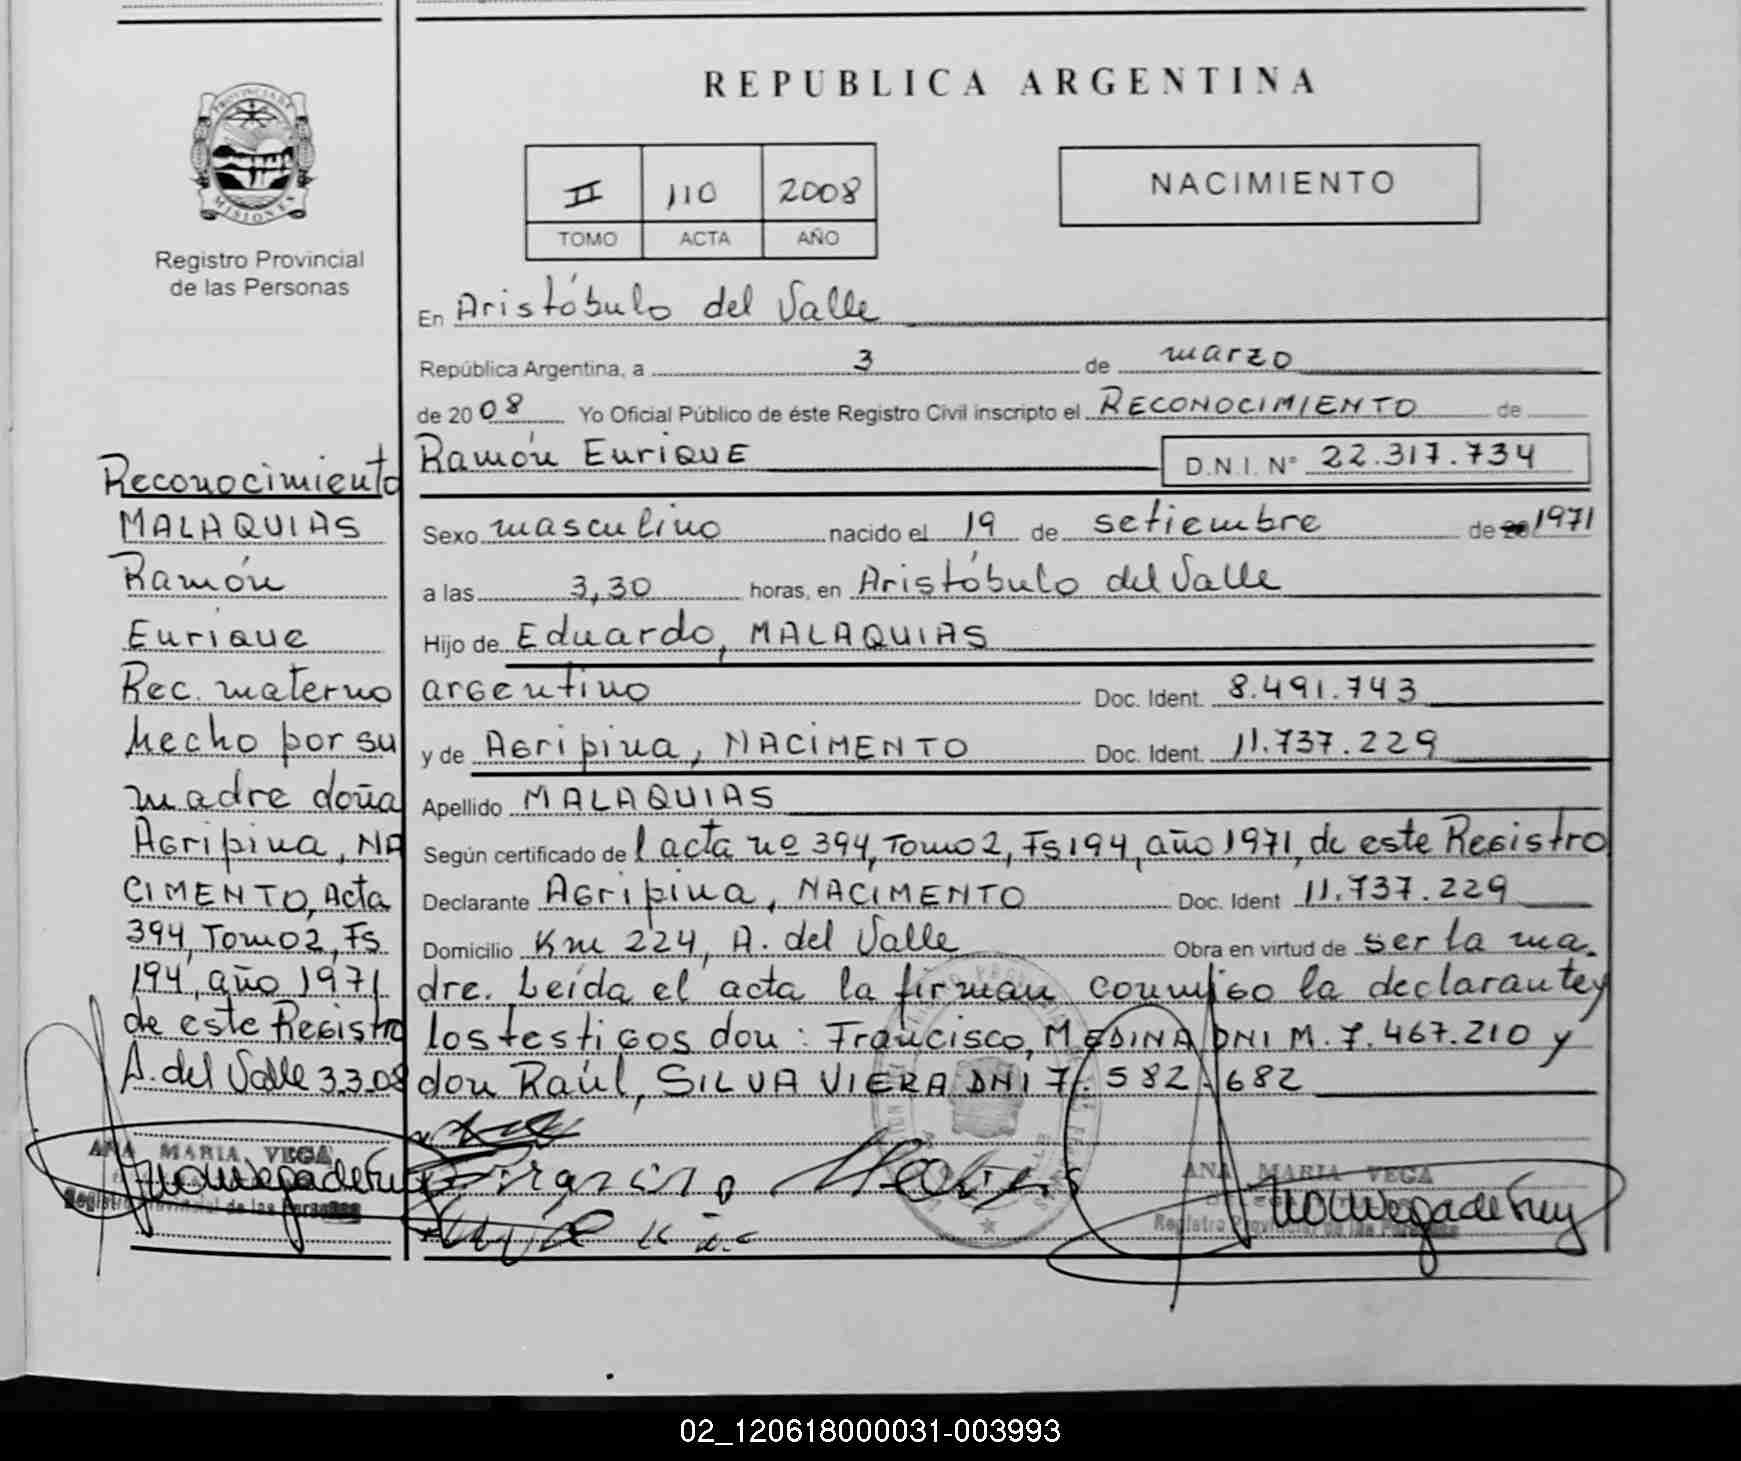 REPUBLICA ARGENTINA
PROVINCIA DE
MISIONES
Registro Provincial
de las Personas
II 110 2008
TOMO ACTA AÑO
NACIMIENTO
En Aristóbulo del Valle
República Argentina, a 3 de marzo
de 2008 Yo Oficial Público de éste Registro Civil inscripto el RECONOCIMIENTO de
Ramón EnriQUE D.N.I. N° 22.317.734
Sexo masculino nacido el 19 de setiembre de 1971
a las 3,30 horas, en Aristóbulo del Valle
Hijo de Eduardo, MALAQUIAS
argentino Doc. Ident. 8.491.743
y de Agripina, NACIMENTO Doc. Ident. 11.737.229
Apellido MALAQUIAS
Según certificado de l acta nº 394, Tomo 2, Fs 194, año 1971, de este Registro
Declarante Agripina, NACIMENTO Doc. Ident 11.737.229
Domicilio Km 224, A. del Valle Obra en virtud de ser la ma-
dre. Leída el acta la firman conmigo la declarante y
los testigos don: Francisco, MEDINA DNI M. 7.467.210 y
don Raúl, SILVA VIERA DNI 7.582.682
Reconocimiento
MALAQUIAS
Ramón
Enrique
Rec. materno
hecho por su
madre doña
Agripina, NA
CIMENTO, Acta
394, Tomo 2, Fs
194, año 1971
de este Registro
A. del Valle 3.3.08
ANA MARIA VEGA
Registro Provincial de las Personas
ANA MARIA VEGA
Registro Provincial de las Personas
02_120618000031-003993